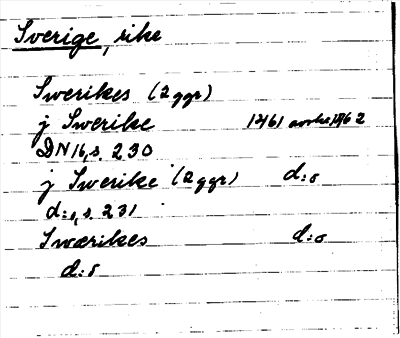 Sverige, rike
Swerikes (2 ggr)
j Swerike 1461 avskr 1462
DN 16, s. 230
j Swerike (2 ggr) d:o
d:o, s. 231
Swærikes d:o
d:o